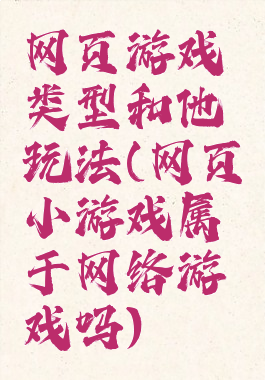 网页游戏
类型和他
玩法(网页
小游戏属
于网络游
戏吗)